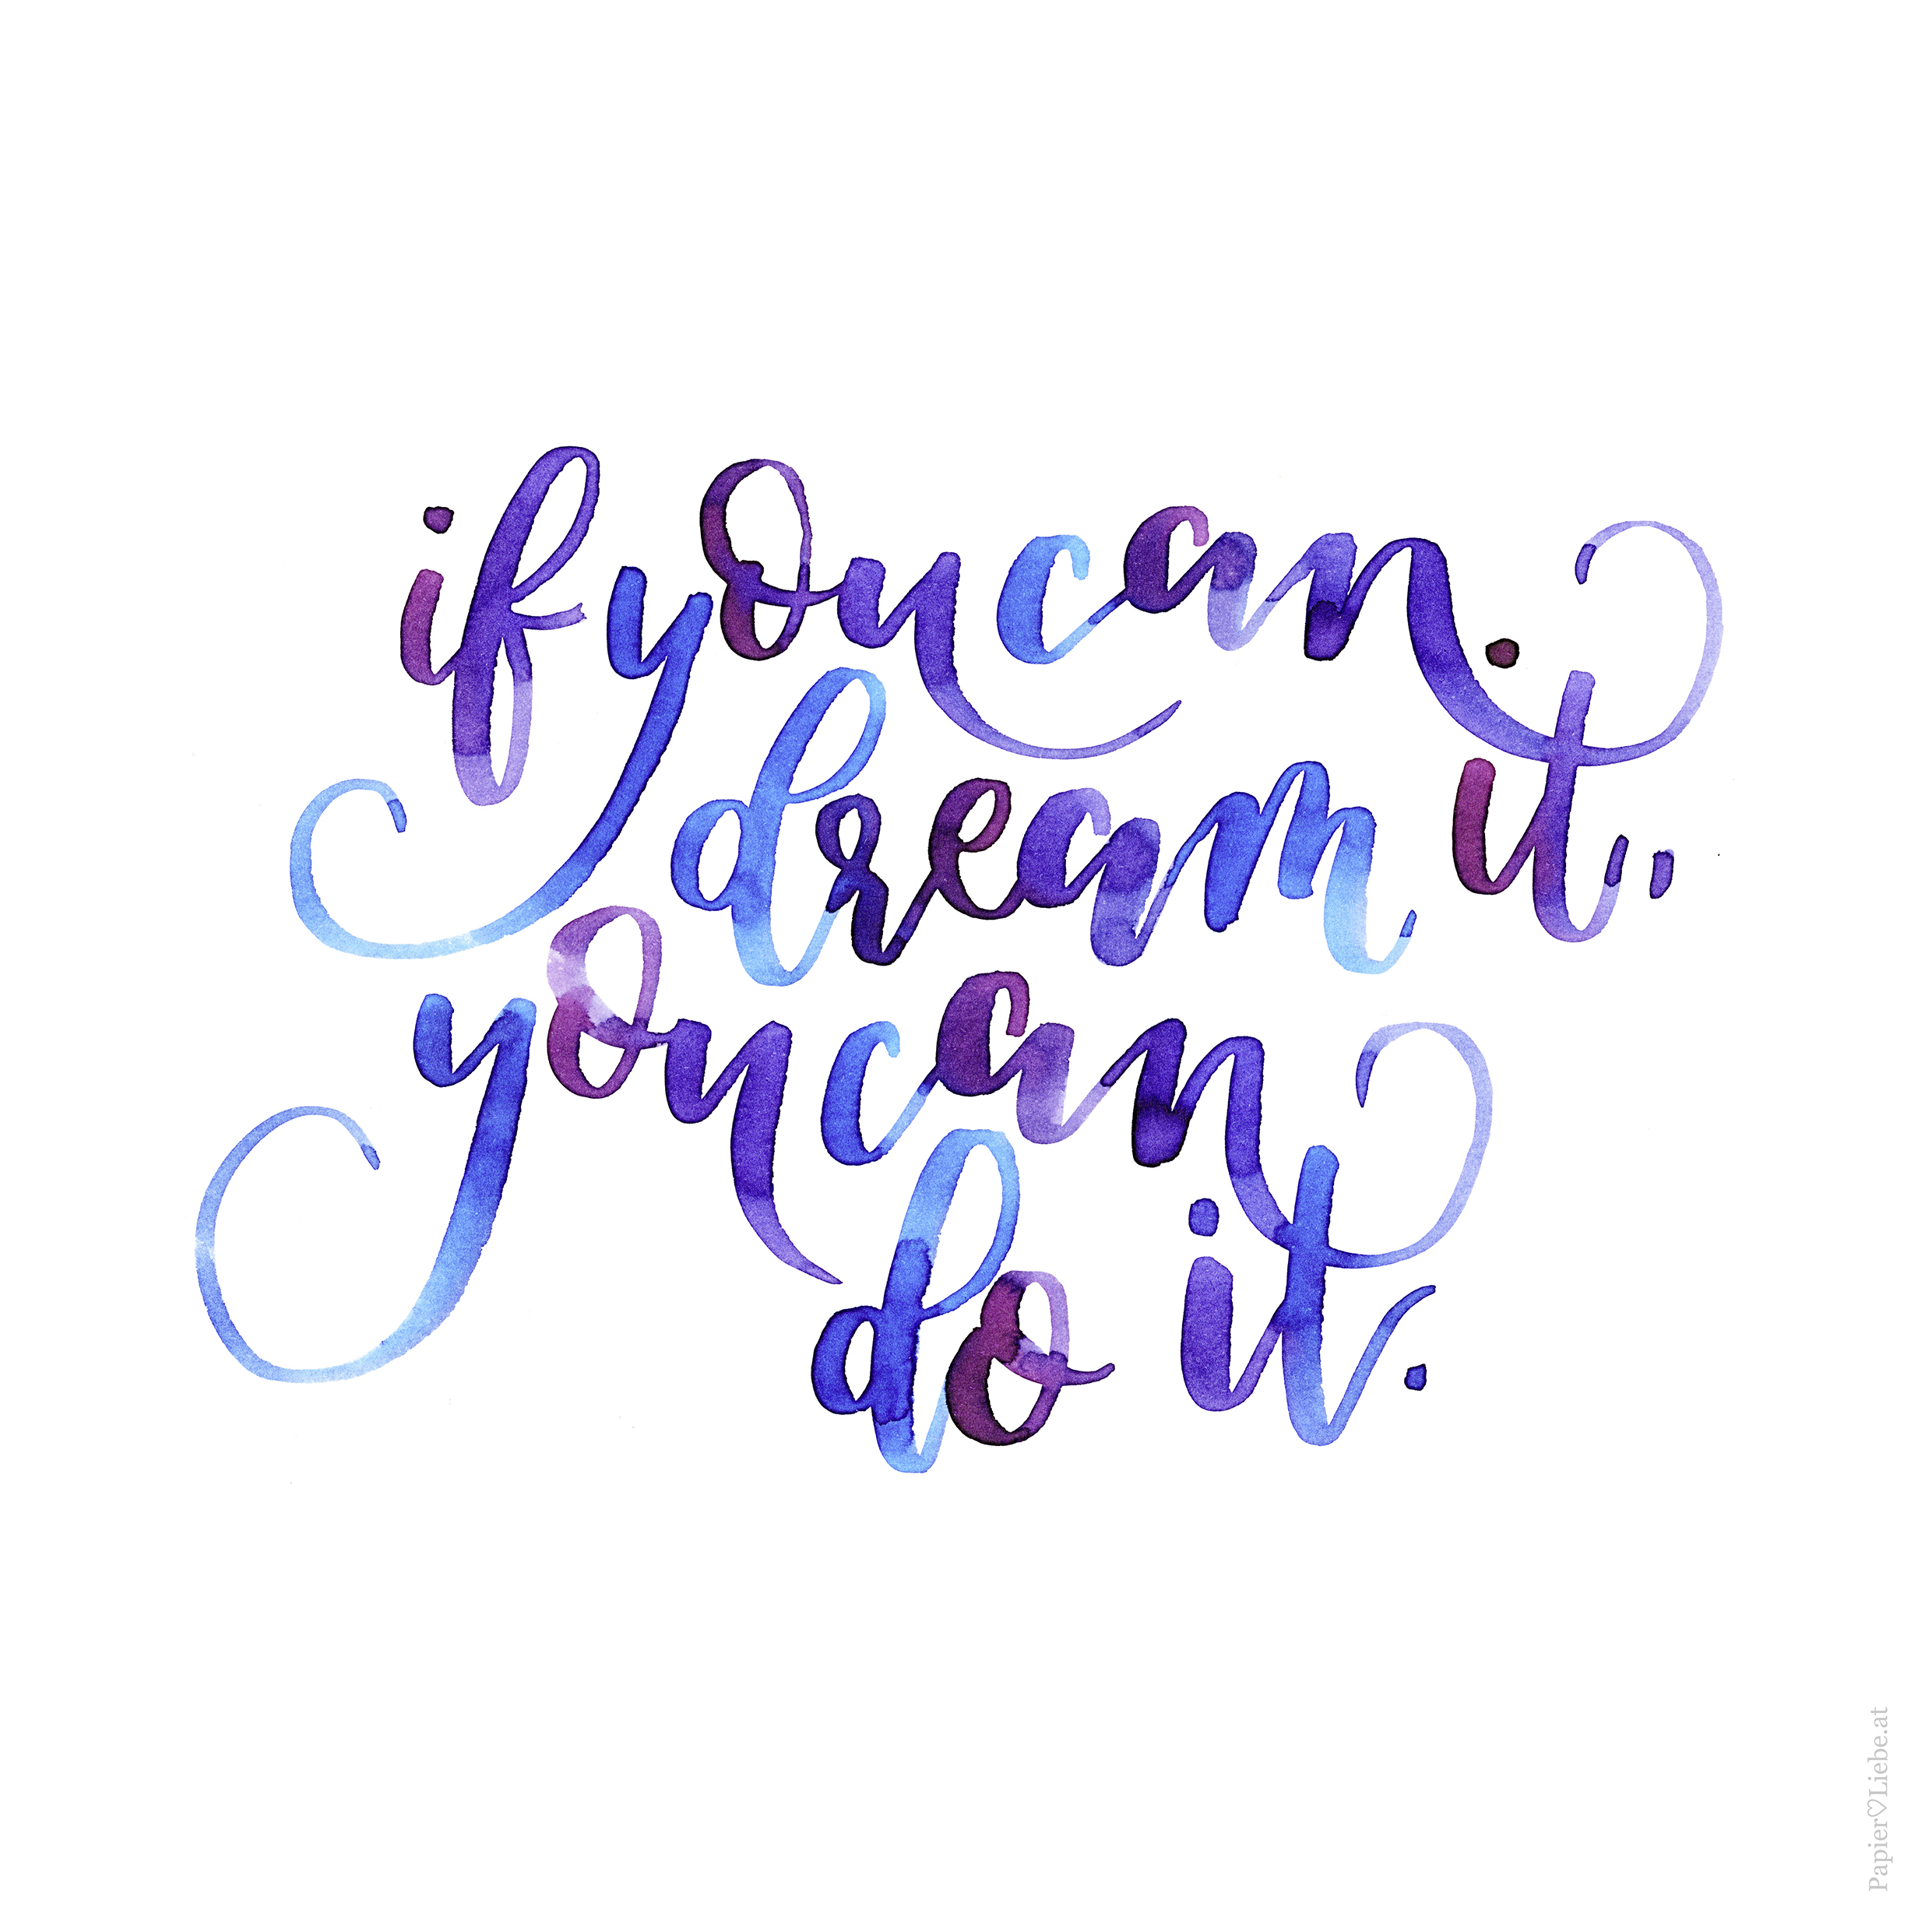 if you can
dream it,
you can
do it.
Papier♡Liebe.at